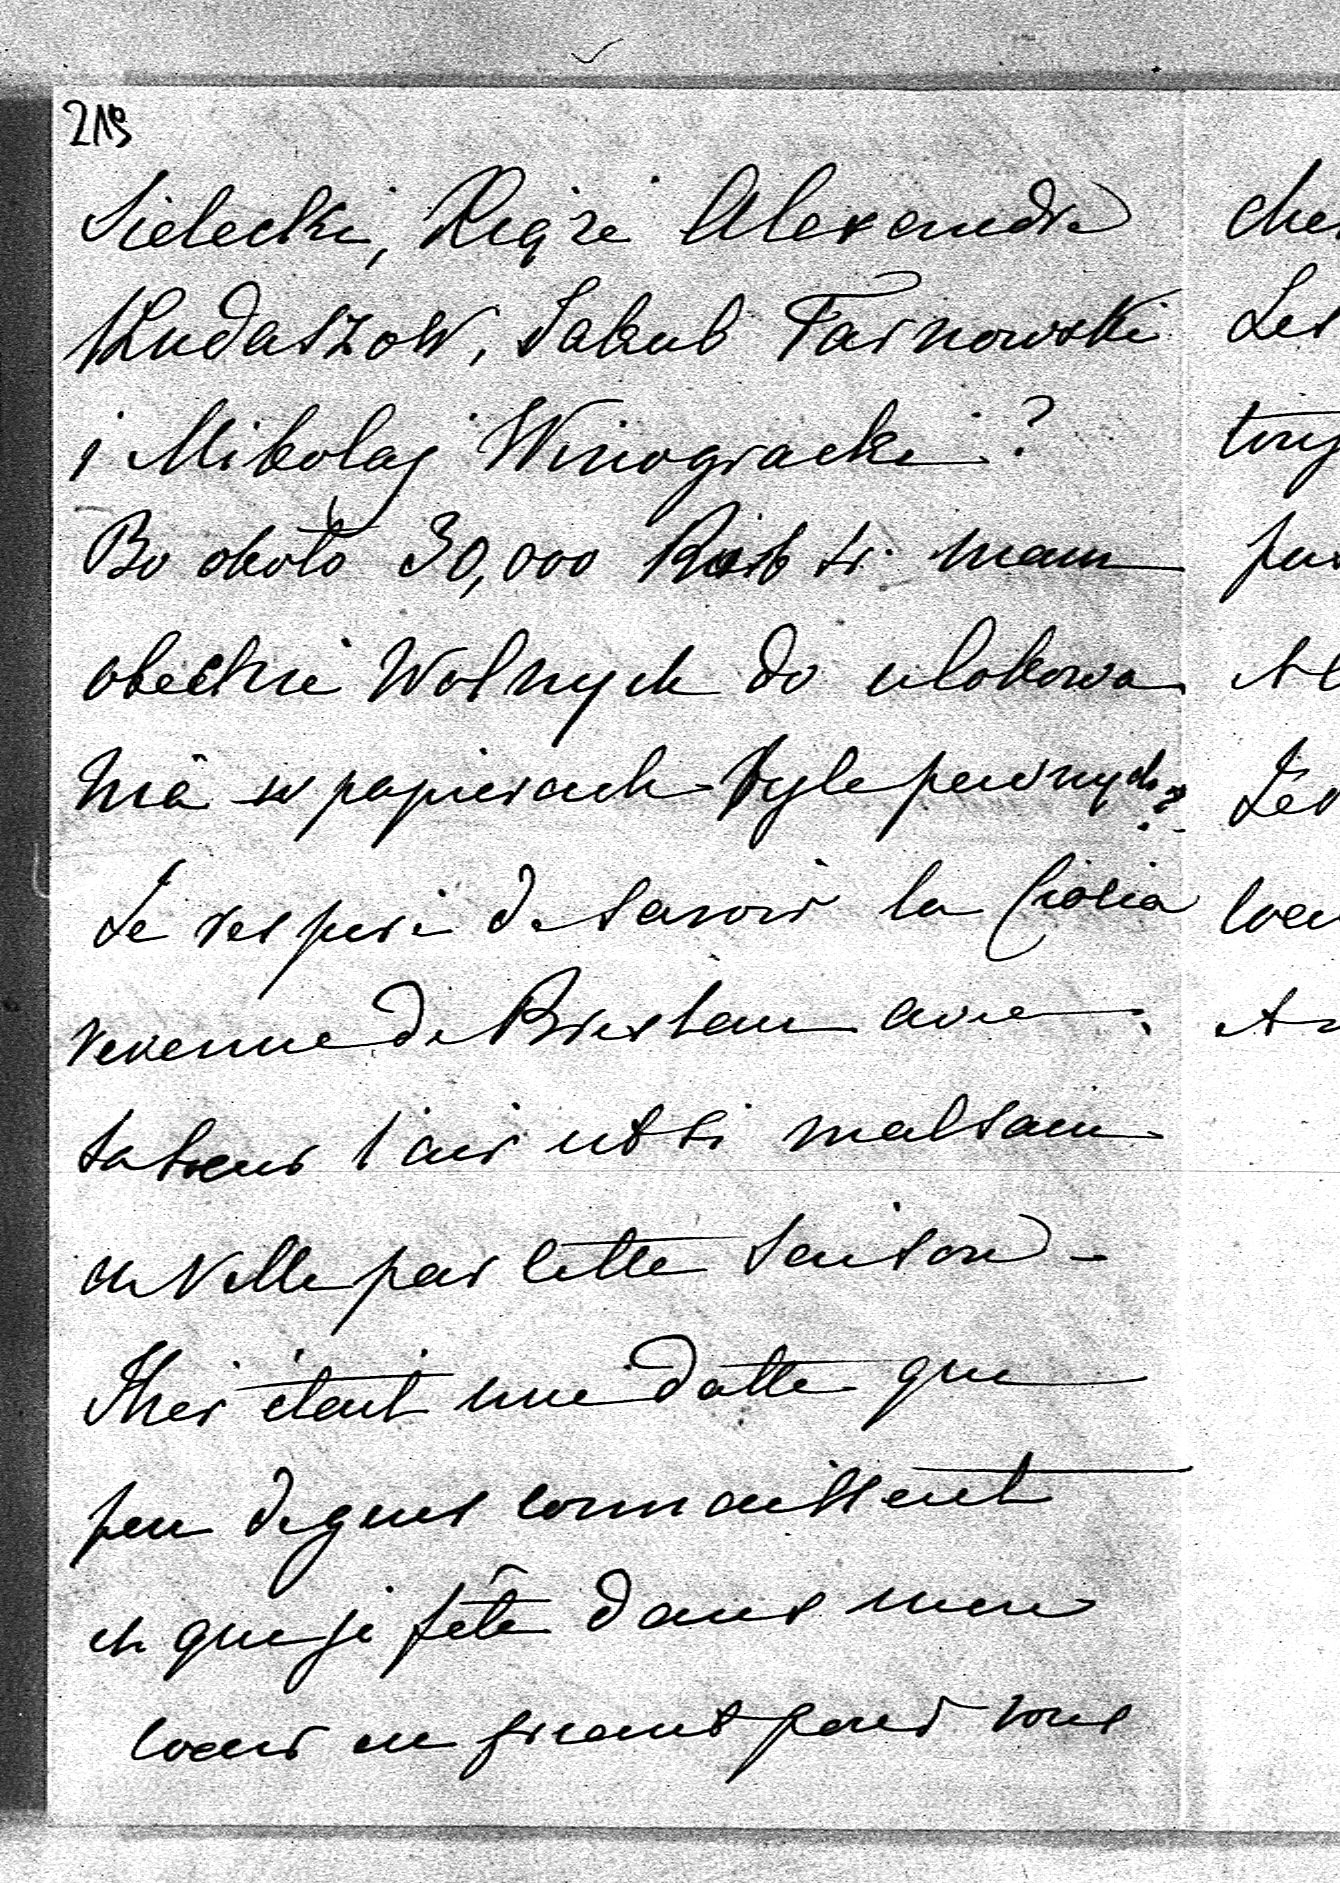 219
Sielecki, Xiąże Alexandre
Kudaszow, Jakub Tarnowski
i Mikołaj Winogracki?
Bo około 30,000 Rub sr. mam
obecnie wolnych do ulokowa
nia w papierach byle pewnych?
Je respire de savoir la Ciocia
revenue de Breslau avec
sa sœur l'air est si malsain
en Ville par cette saison -
Hier était une datte que
peu de gens connaissent
et que je fête dans mon
cœur en priant pour vous